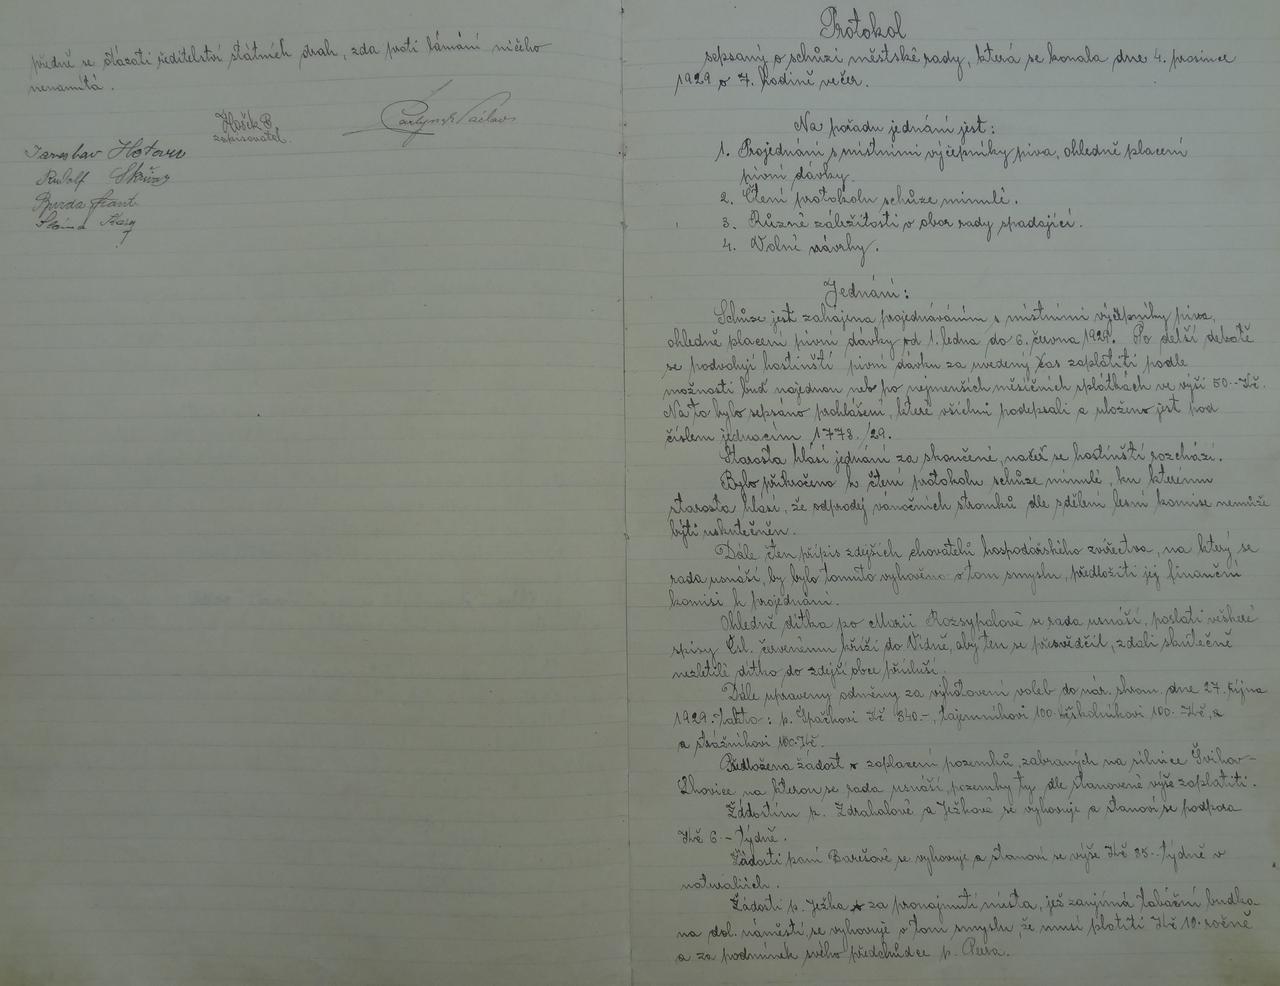 předně se otázati ředitelství státních drah, zda proti lámání ničeho
nenamítá.
Hošek B
zapisovatel.
Václav
Jaroslav
Rudolf
Burda Frant
Protokol
sepsaný o schůzi městské rady, která se konala dne 4. prosince
1929 o 7. hodině večer.
Na pořadu jednání jest:
1. Projednání s místními výčepníky piva, ohledně placení
pivní dávky.
2. Čtení protokolu schůze minulé.
3. Různé záležitosti v obor rady spadající.
4. Volné návrhy.
Jednání:
Schůze jest zahájena projednáváním s místními výčepníky piva,
ohledně placení pivní dávky od 1. ledna do 6. června 1929. Po delší debatě
se podvolují hostinští pivní dávku za uvedený čas zaplatiti podle
možnosti buď najednou nebo po nejmenších měsíčních splátkách ve výši 50.- Kč.
Na to bylo sepsáno prohlášení, které všichni podepsali a uloženo jest pod
číslem jednacím 1778./29.
Starosta hlásí jednání za skončené, načež se hostinští rozchází.
Bylo přikročeno k čtení protokolu schůze minulé, ku kterému
starosta hlásí, že odprodej vánočních stromků dle sdělení lesní komise nemůže
býti uskutečněn.
Dále čten přípis zdejších chovatelů hospodářského zvířectva, na který se
rada usnáší, by bylo tomuto vyhověno v tom smyslu, předložiti jej finanční
komisi k projednání.
Ohledně dítka po Marii Rozsypalové se rada usnáší, poslati veškeré
spisy Čsl. červenému kříži do Vídně, aby ten se přesvědčil, zdali skutečně
nezletilé dítko do zdejší obce přísluší.
Dále upraveny odměny za vyhotovení voleb do nár. shrom. dne 27. října
1929. takto: p. Špačkovi Kč 340.-, tajemníkovi 100.- Kč školníkovi 100.- Kč, a
a strážníkovi 100.- Kč.
Předložena žádost zaplacení pozemků, zabraných na silnice Švihov-
Lhovice na kterou se rada usnáší, pozemky ty dle stanovené výše zaplatiti.
Žádostím p. Zdrahalové a Ježkové se vyhovuje a stanoví se podpora
Kč 6.- týdně.
Žádosti paní Barešové se vyhovuje a stanoví se výše Kč 35.- týdně v
naturaliích.
Žádosti p. Ježka za pronajmutí místa, jež zaujímá tabáční budka
na dol. náměstí, se vyhovuje v tom smyslu, že musí platiti Kč 10.- ročně
a za podmínek svého předchůdce p.